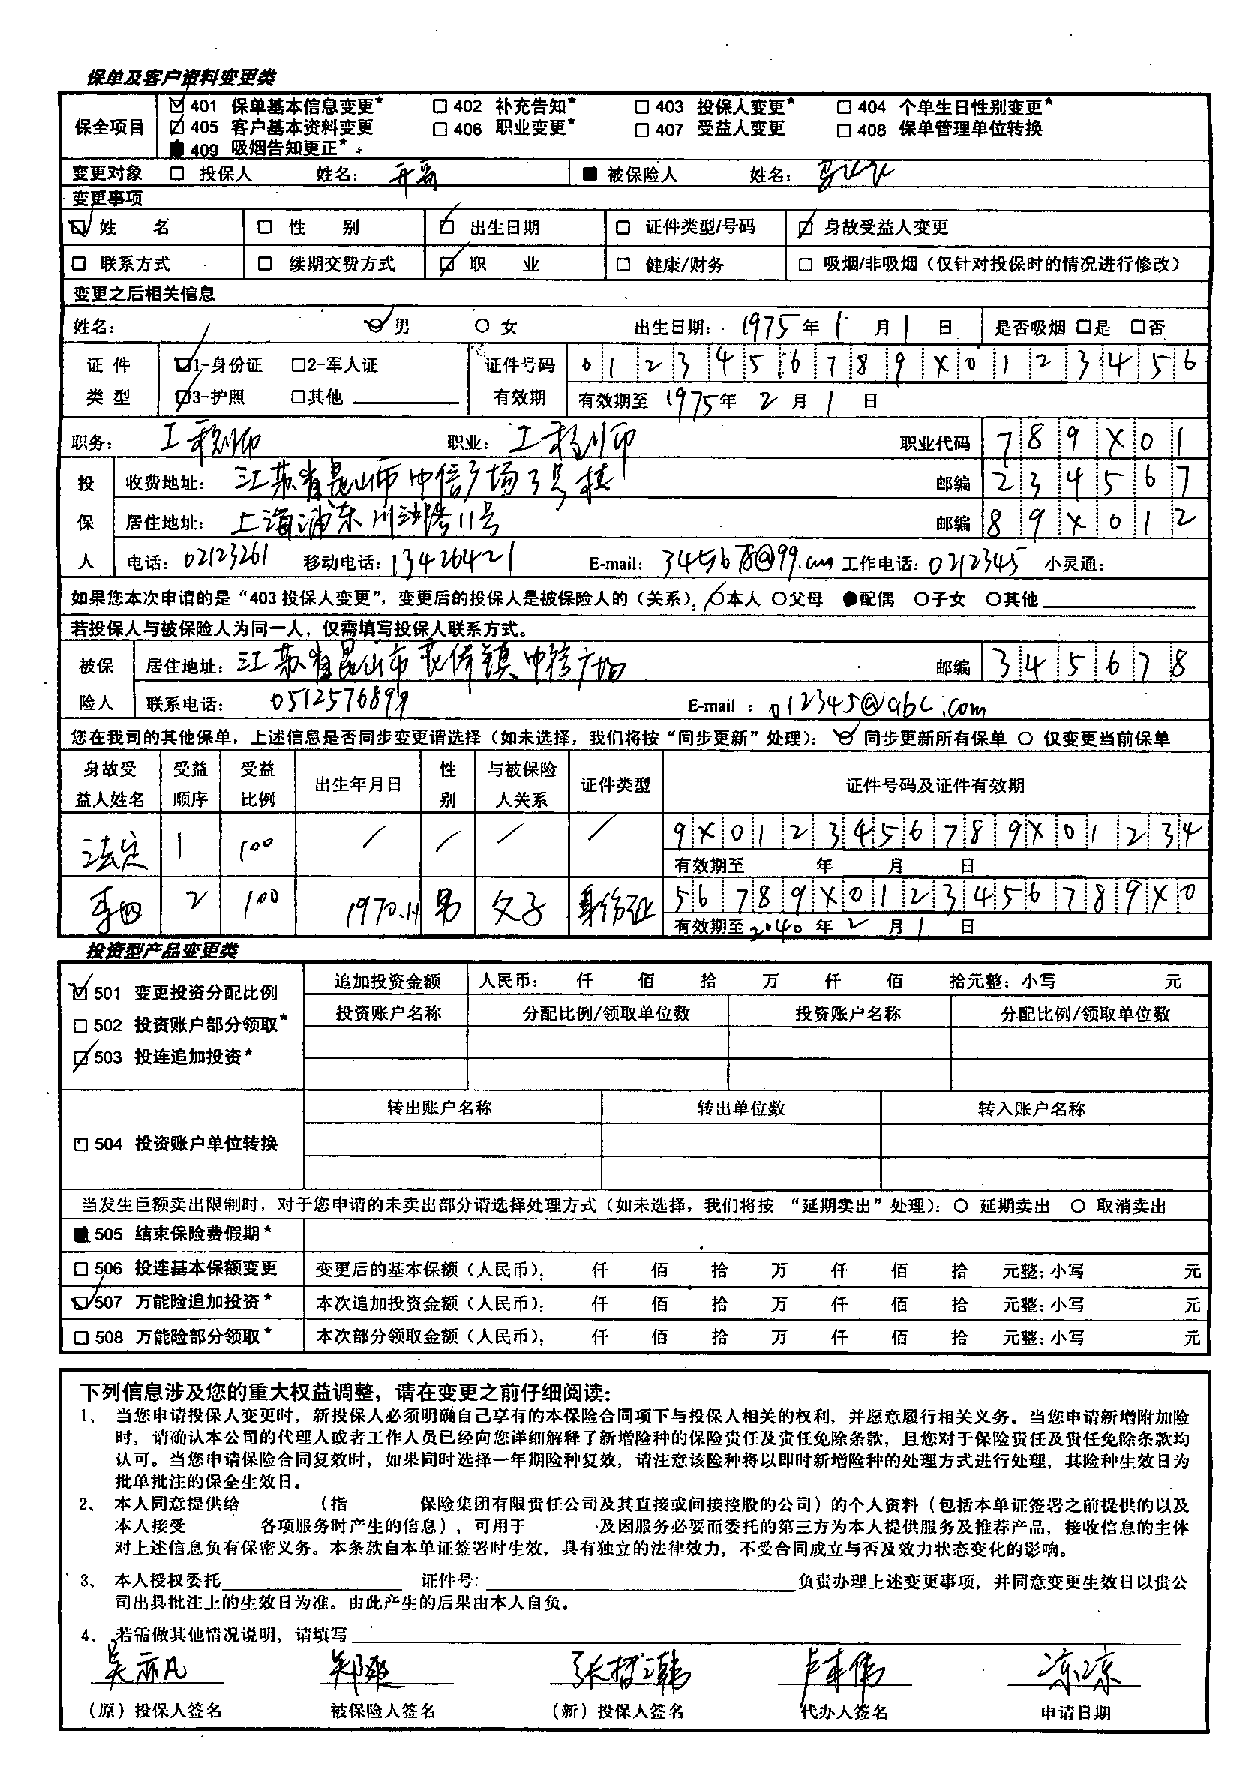 保单及客户资料变更类
保全项目
☑ 401 保单基本信息变更* □ 402 补充告知* □ 403 投保人变更* □ 404 个单生日性别变更*
☑ 405 客户基本资料变更 □ 406 职业变更* □ 407 受益人变更 □ 408 保单管理单位转换
■ 409 吸烟告知更正*
变更对象 □ 投保人 姓名: ■ 被保险人 姓名:
变更事项
☑ 姓 名 □ 性 别 ☑ 出生日期 □ 证件类型/号码 ☑ 身故受益人变更
□ 联系方式 □ 续期交费方式 ☑ 职 业 □ 健康/财务 □ 吸烟/非吸烟（仅针对投保时的情况进行修改）
变更之后相关信息
姓名: 男 ○ 女 出生日期: 1975 年 1 月 1 日 是否吸烟 □是 □否
证件类型 ☑1-身份证 □2-军人证 证件号码 0123456789X0123456
☑3-护照 □其他 有效期 有效期至 1975 年 2 月 1 日
职务: 工程师 职业: 工程师 职业代码 789X01
投保人 收费地址: 江苏省昆山市中信广场3号楼 邮编 234567
居住地址: 上海浦东川沙路11号 邮编 89X012
电话: 02123261 移动电话: 13426421 E-mail: 345678@99.com 工作电话: 0212345 小灵通:
如果您本次申请的是“403 投保人变更”, 变更后的投保人是被保险人的（关系）: 本人 ○父母 ●配偶 ○子女 ○其他
若投保人与被保险人为同一人，仅需填写投保人联系方式。
被保险人 居住地址: 江苏省昆山市 镇中 广场 邮编 345678
联系电话: 0512576899 E-mail : 012345@abc.com
您在我司的其他保单，上述信息是否同步变更请选择（如未选择，我们将按“同步更新”处理）: 同步更新所有保单 ○ 仅变更当前保单
身故受益人姓名 受益顺序 受益比例 出生年月日 性别 与被保险人关系 证件类型 证件号码及证件有效期
法定 1 100 / / / / 9X0123456789X01234
有效期至 年 月 日
李四 2 100 1970.1.1 男 父子 身份证 56789X0123456789X0
有效期至 2040 年 2 月 1 日
投资型产品变更类
☑ 501 变更投资分配比例 追加投资金额 人民币: 仟 佰 拾 万 仟 佰 拾元整: 小写 元
□ 502 投资账户部分领取* 投资账户名称 分配比例/领取单位数 投资账户名称 分配比例/领取单位数
☑ 503 投连追加投资*
□ 504 投资账户单位转换 转出账户名称 转出单位数 转入账户名称
当发生巨额卖出限制时，对于您申请的未卖出部分请选择处理方式（如未选择，我们将按 “延期卖出”处理）: ○ 延期卖出 ○ 取消卖出
■ 505 结束保险费假期*
□ 506 投连基本保额变更 变更后的基本保额（人民币）: 仟 佰 拾 万 仟 佰 拾 元整: 小写 元
☑ 507 万能险追加投资* 本次追加投资金额（人民币）: 仟 佰 拾 万 仟 佰 拾 元整: 小写 元
□ 508 万能险部分领取* 本次部分领取金额（人民币）: 仟 佰 拾 万 仟 佰 拾 元整: 小写 元
下列信息涉及您的重大权益调整，请在变更之前仔细阅读:
1、当您申请投保人变更时，新投保人必须明确自己享有的本保险合同项下与投保人相关的权利，并愿意履行相关义务。当您申请新增附加险
时，请确认本公司的代理人或者工作人员已经向您详细解释了新增险种的保险责任及责任免除条款，且您对于保险责任及责任免除条款均
认可。当您申请保险合同复效时，如果同时选择一年期险种复效，请注意该险种将以即时新增险种的处理方式进行处理，其险种生效日为
批单批注的保全生效日。
2、本人同意提供给 （指 保险集团有限责任公司及其直接或间接控股的公司）的个人资料（包括本单证签署之前提供的以及
本人接受 各项服务时产生的信息），可用于 及因服务必要而委托的第三方为本人提供服务及推荐产品，接收信息的主体
对上述信息负有保密义务。本条款自本单证签署时生效，具有独立的法律效力，不受合同成立与否及效力状态变化的影响。
3、本人授权委托 证件号: 负责办理上述变更事项，并同意变更生效日以贵公
司出具批注上的生效日为准。由此产生的后果由本人自负。
4、若需做其他情况说明，请填写
吴亦凡 郑爽 张哲瀚 卢本伟 凉凉
（原）投保人签名 被保险人签名 （新）投保人签名 代办人签名 申请日期